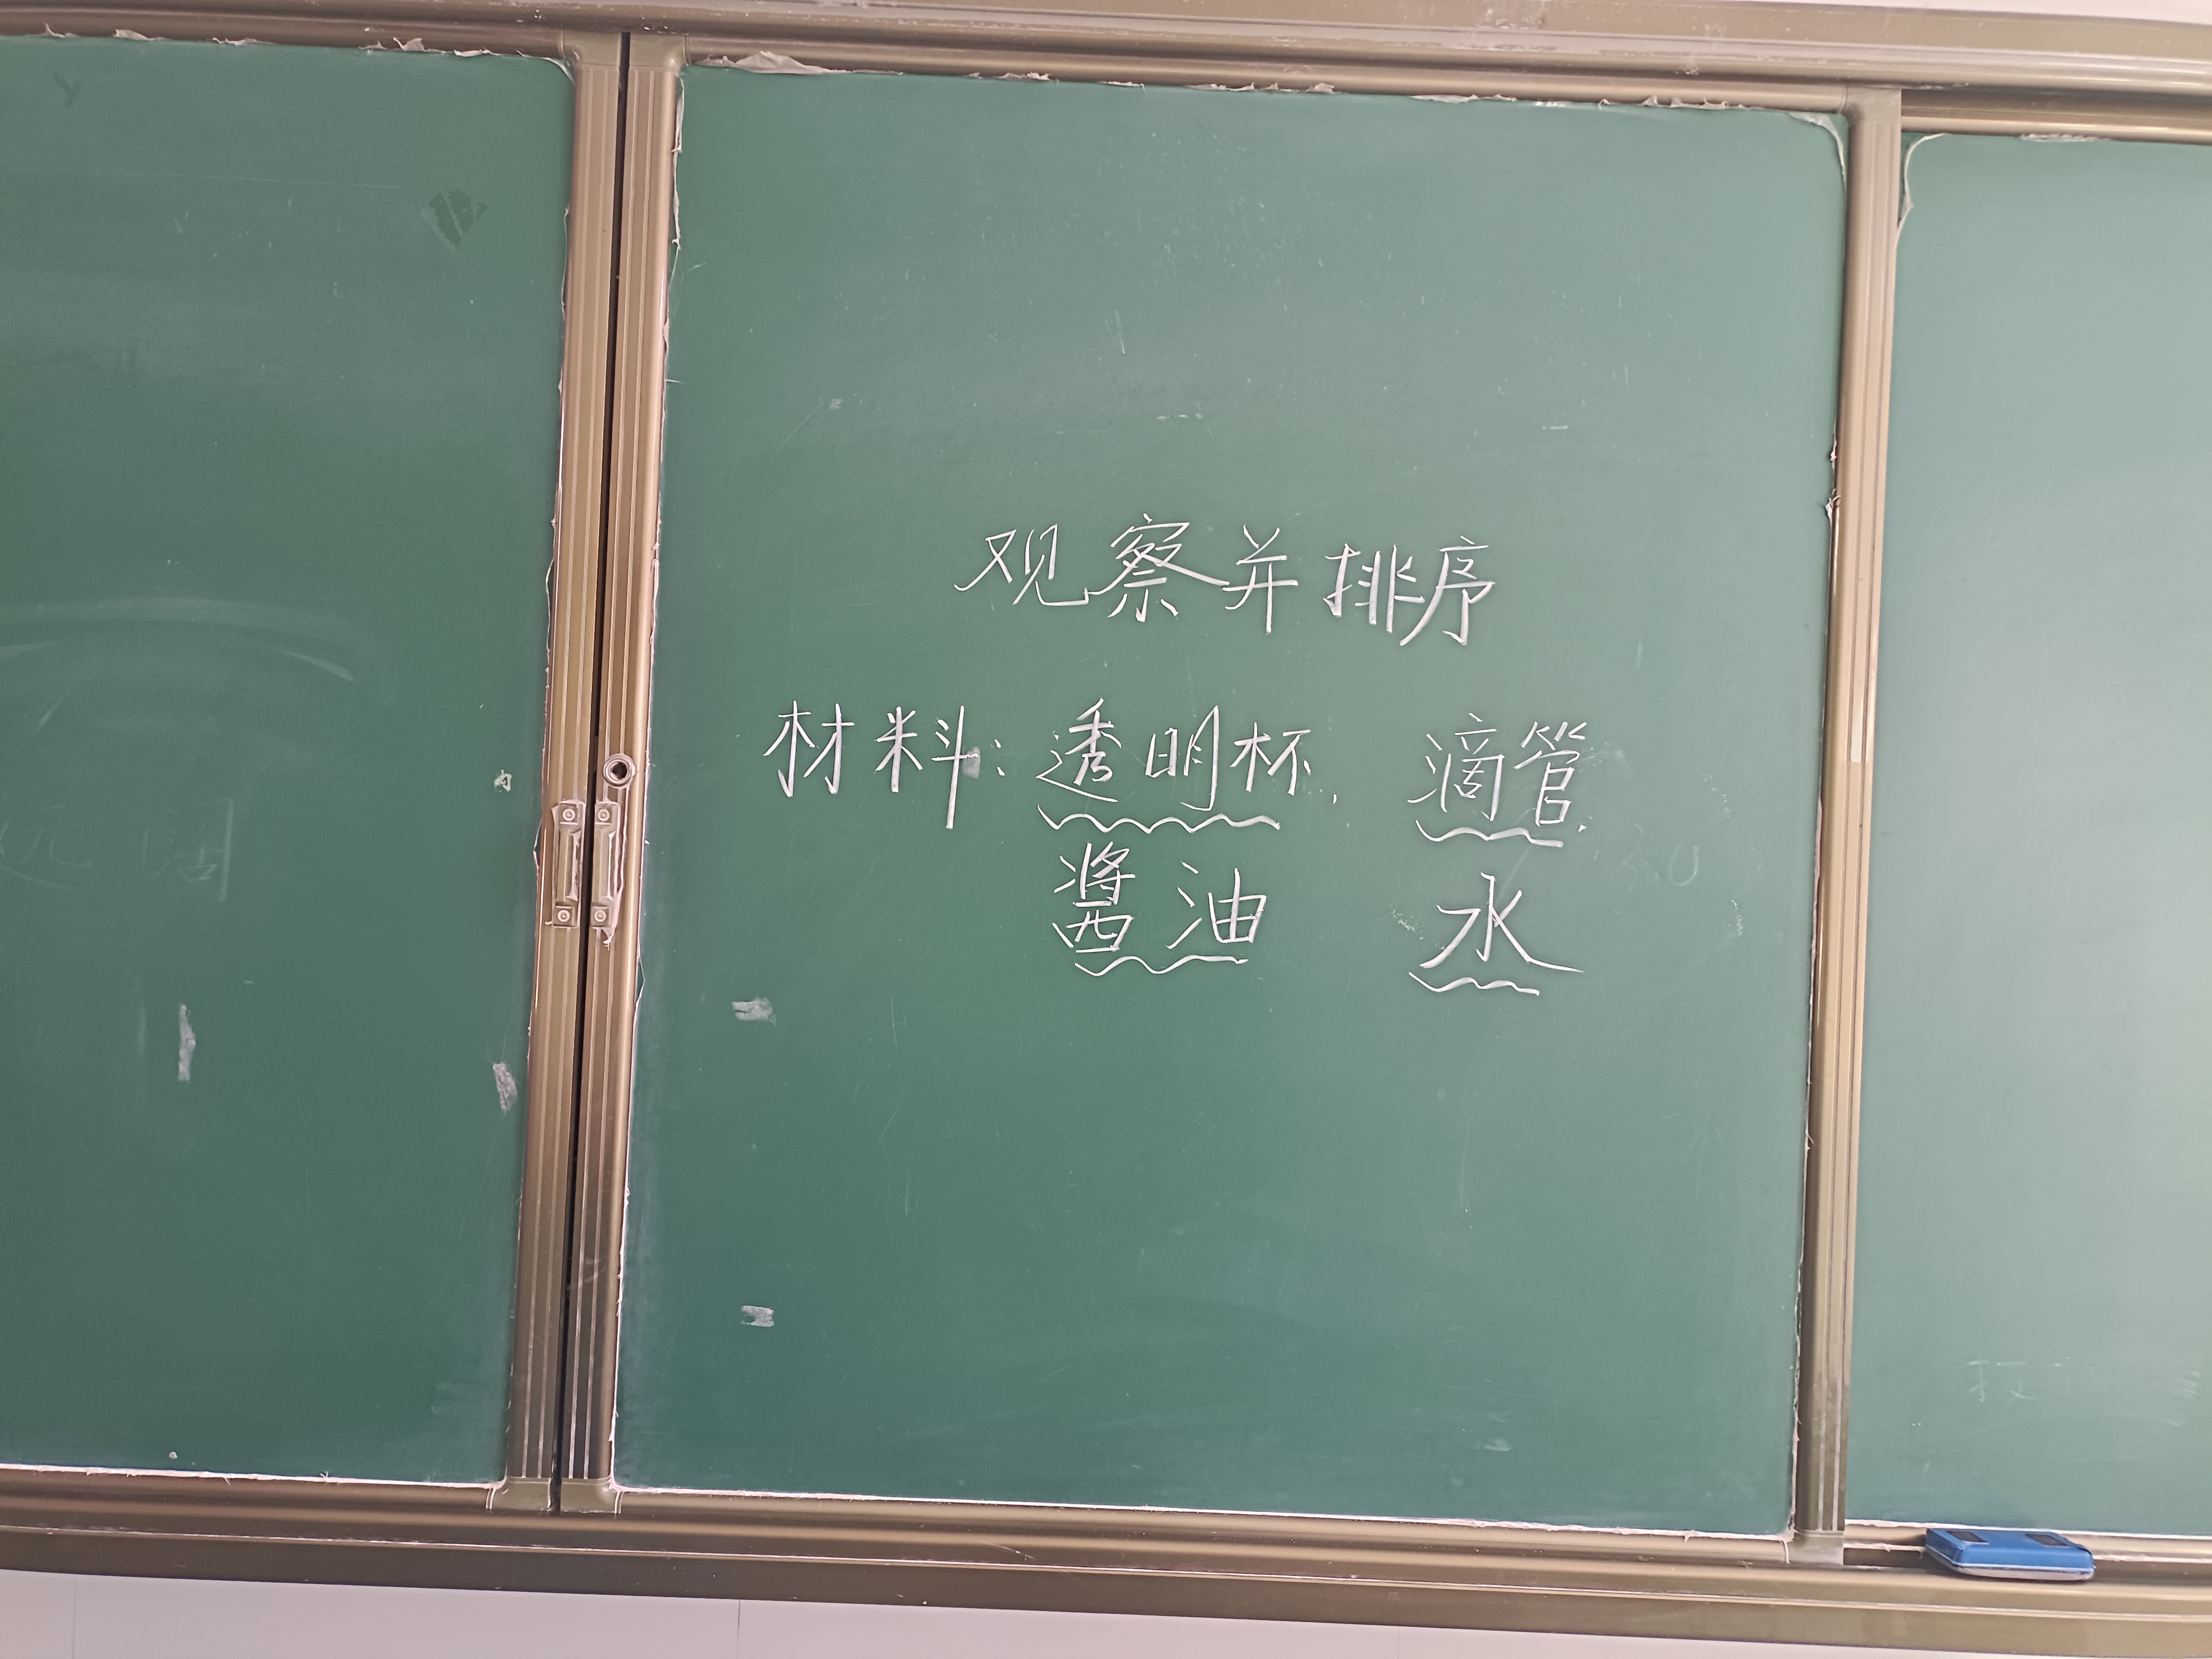 观察并排序
材料：透明杯、滴管、
酱油 水